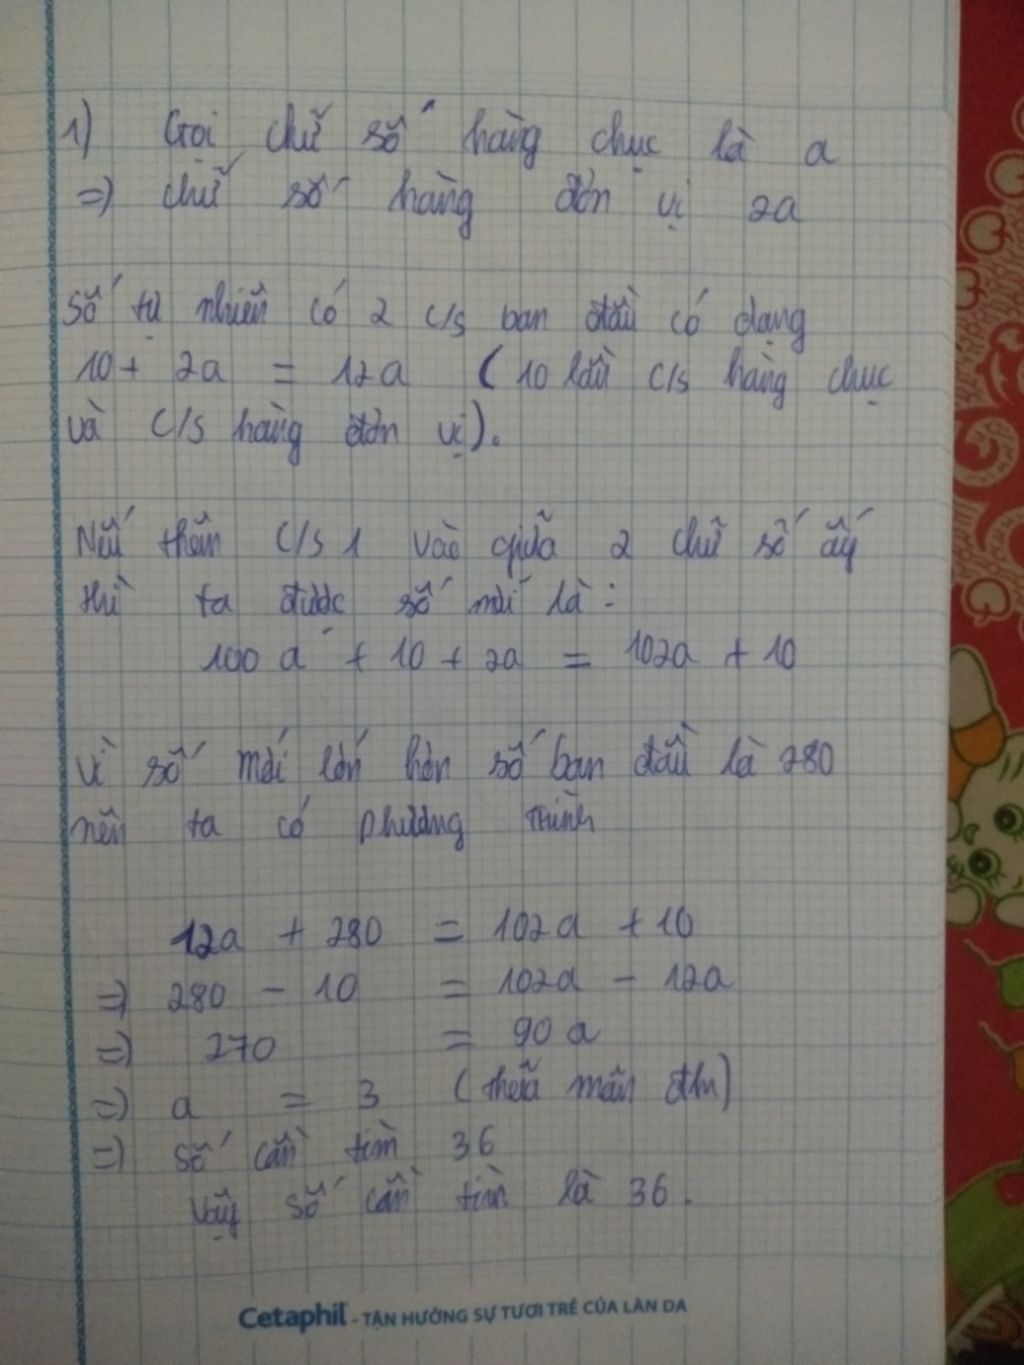 1) Gọi chữ số hàng chục là a
=) chữ số hàng đơn vị 2a
Số tự nhiên có 2 c/s ban đầu có dạng
10 + 2a = 12a (10 lần c/s hàng chục
và c/s hàng đơn vị).
Nếu thêm c/s 1 vào giữa 2 chữ số ấy
thì ta được số mới là:
100a + 10 + 2a = 102a + 10
Vì số mới lớn hơn số ban đầu là 280
nên ta có phương trình
12a + 280 = 102a + 10
=) 280 - 10 = 102a - 12a
=) 270 = 90a
=) a = 3 (thỏa mãn đk)
=) số cần tìm 36
Vậy số cần tìm là 36.
Cetaphil - TẬN HƯỞNG SỰ TƯƠI TRẺ CỦA LÀN DA